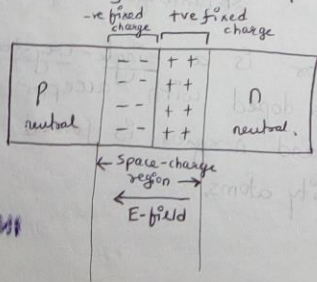 -ve fixed charge
+ve fixed charge
- - + +
p - - + + n
neutral - - + + neutral.
- - + +
Space-charge
region
E-field